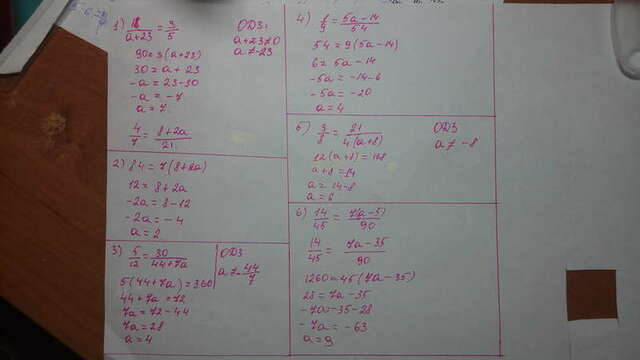 1) 18/(a+23) = 3/5
ОДЗ:
a+23≠0
a≠-23
90=3(a+23)
30=a+23
-a=23-30
-a=-7
a=7.
4/7 = (8+2a)/21
2) 84=7(8+2a)
12=8+2a
-2a=8-12
-2a=-4
a=2
3) 5/12 = 30/(44+7a)
ОДЗ
a≠-44/7
5(44+7a)=360
44+7a=72
7a=72-44
7a=28
a=4
4) 6/9 = (5a-14)/54
54=9(5a-14)
6=5a-14
-5a=-14-6
-5a=-20
a=4
5) 3/8 = 21/(4(a+8))
ОДЗ
a≠-8
12(a+8)=168
a+8=14
a=14-8
a=6
6) 14/45 = 7(a-5)/90
14/45 = (7a-35)/90
1260=45(7a-35)
28=7a-35
-7a=-35-28
-7a=-63
a=9